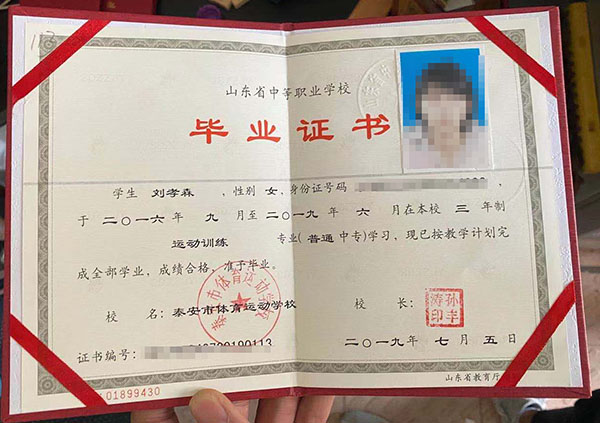 山东省中等职业学校
毕业证书
学生 刘孝森 ,性别 女,身份证号码
于二〇一六年 九 月至二〇一九年 六 月在本校 三 年制
运动训练 专业(普通中专)学习,现已按教学计划完
成全部学业,成绩合格,准予毕业。
校 名:泰安市体育运动学校 校 长:
泰安市体育运动学校
孙丰涛印
证书编号: 二〇一九年 七 月 五 日
01899430
山东省教育厅